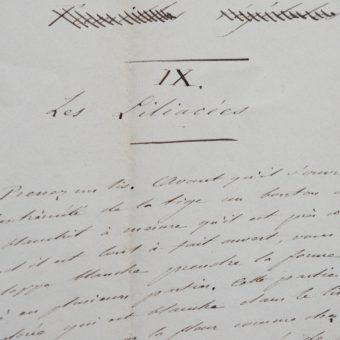 IX.
Les Liliacées
Prenez un lis. Avant qu'il s'ouvre
l'extrémité de la tige un bouton
blanchit à mesure qu'il est près
et il est tout à fait ouvert, vous
blanche prendre la forme
en plusieurs parties. Cette partie
qui est blanche dans le lis
la fleur comme